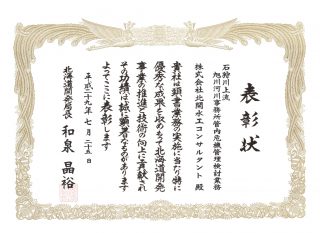 表彰状
石狩川上流
旭川河川事務所管内危機管理検討業務
株式会社北開水工コンサルタント 殿
貴社は頭書業務の実施に当たり特に
優秀な成果を収めもって北海道開発
事業の推進と技術の向上に貢献され
その功績は誠に顕著なものがあります
よってここに表彰します
平成二十九年七月二十五日
北海道開発局長 和泉晶裕